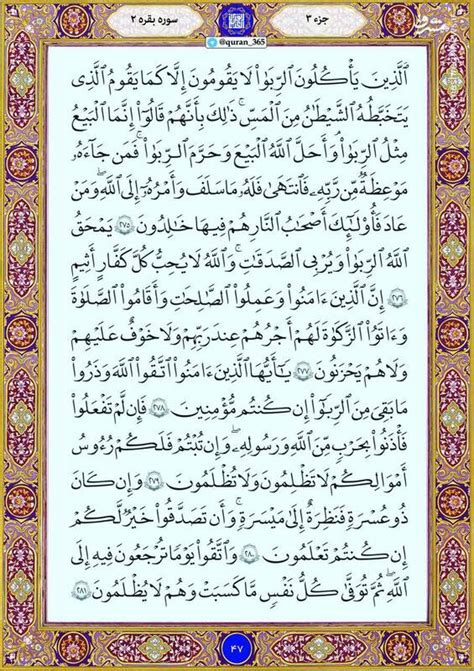 جزء ۳
سوره بقره ۲
@quran_365
ٱلَّذِينَ يَأۡكُلُونَ ٱلرِّبَوٰاْ لَا يَقُومُونَ إِلَّا كَمَا يَقُومُ ٱلَّذِى
يَتَخَبَّطُهُ ٱلشَّيۡطَٰنُ مِنَ ٱلۡمَسِّۚ ذَٰلِكَ بِأَنَّهُمۡ قَالُوٓاْ إِنَّمَا ٱلۡبَيۡعُ
مِثۡلُ ٱلرِّبَوٰاْۗ وَأَحَلَّ ٱللَّهُ ٱلۡبَيۡعَ وَحَرَّمَ ٱلرِّبَوٰاْۚ فَمَن جَآءَهُۥ
مَوۡعِظَةٞ مِّن رَّبِّهِۦ فَٱنتَهَىٰ فَلَهُۥ مَا سَلَفَ وَأَمۡرُهُۥٓ إِلَى ٱللَّهِۖ وَمَنۡ
عَادَ فَأُوْلَٰٓئِكَ أَصۡحَٰبُ ٱلنَّارِۖ هُمۡ فِيهَا خَٰلِدُونَ ۲۷۵ يَمۡحَقُ
ٱللَّهُ ٱلرِّبَوٰاْ وَيُرۡبِى ٱلصَّدَقَٰتِۗ وَٱللَّهُ لَا يُحِبُّ كُلَّ كَفَّارٍ أَثِيمٍ
۲۷۶ إِنَّ ٱلَّذِينَ ءَامَنُواْ وَعَمِلُواْ ٱلصَّٰلِحَٰتِ وَأَقَامُواْ ٱلصَّلَوٰةَ
وَءَاتَوُاْ ٱلزَّكَوٰةَ لَهُمۡ أَجۡرُهُمۡ عِندَ رَبِّهِمۡ وَلَا خَوۡفٌ عَلَيۡهِمۡ
وَلَا هُمۡ يَحۡزَنُونَ ۲۷۷ يَٰٓأَيُّهَا ٱلَّذِينَ ءَامَنُواْ ٱتَّقُواْ ٱللَّهَ وَذَرُواْ
مَا بَقِىَ مِنَ ٱلرِّبَوٰٓاْ إِن كُنتُم مُّؤۡمِنِينَ ۲۷۸ فَإِن لَّمۡ تَفۡعَلُواْ
فَأۡذَنُواْ بِحَرۡبٖ مِّنَ ٱللَّهِ وَرَسُولِهِۦۖ وَإِن تُبۡتُمۡ فَلَكُمۡ رُءُوسُ
أَمۡوَٰلِكُمۡ لَا تَظۡلِمُونَ وَلَا تُظۡلَمُونَ ۲۷۹ وَإِن كَانَ
ذُو عُسۡرَةٖ فَنَظِرَةٌ إِلَىٰ مَيۡسَرَةٖۚ وَأَن تَصَدَّقُواْ خَيۡرٞ لَّكُمۡ
إِن كُنتُمۡ تَعۡلَمُونَ ۲۸۰ وَٱتَّقُواْ يَوۡمٗا تُرۡجَعُونَ فِيهِ إِلَى
ٱللَّهِۖ ثُمَّ تُوَفَّىٰ كُلُّ نَفۡسٖ مَّا كَسَبَتۡ وَهُمۡ لَا يُظۡلَمُونَ ۲۸۱
۴۷